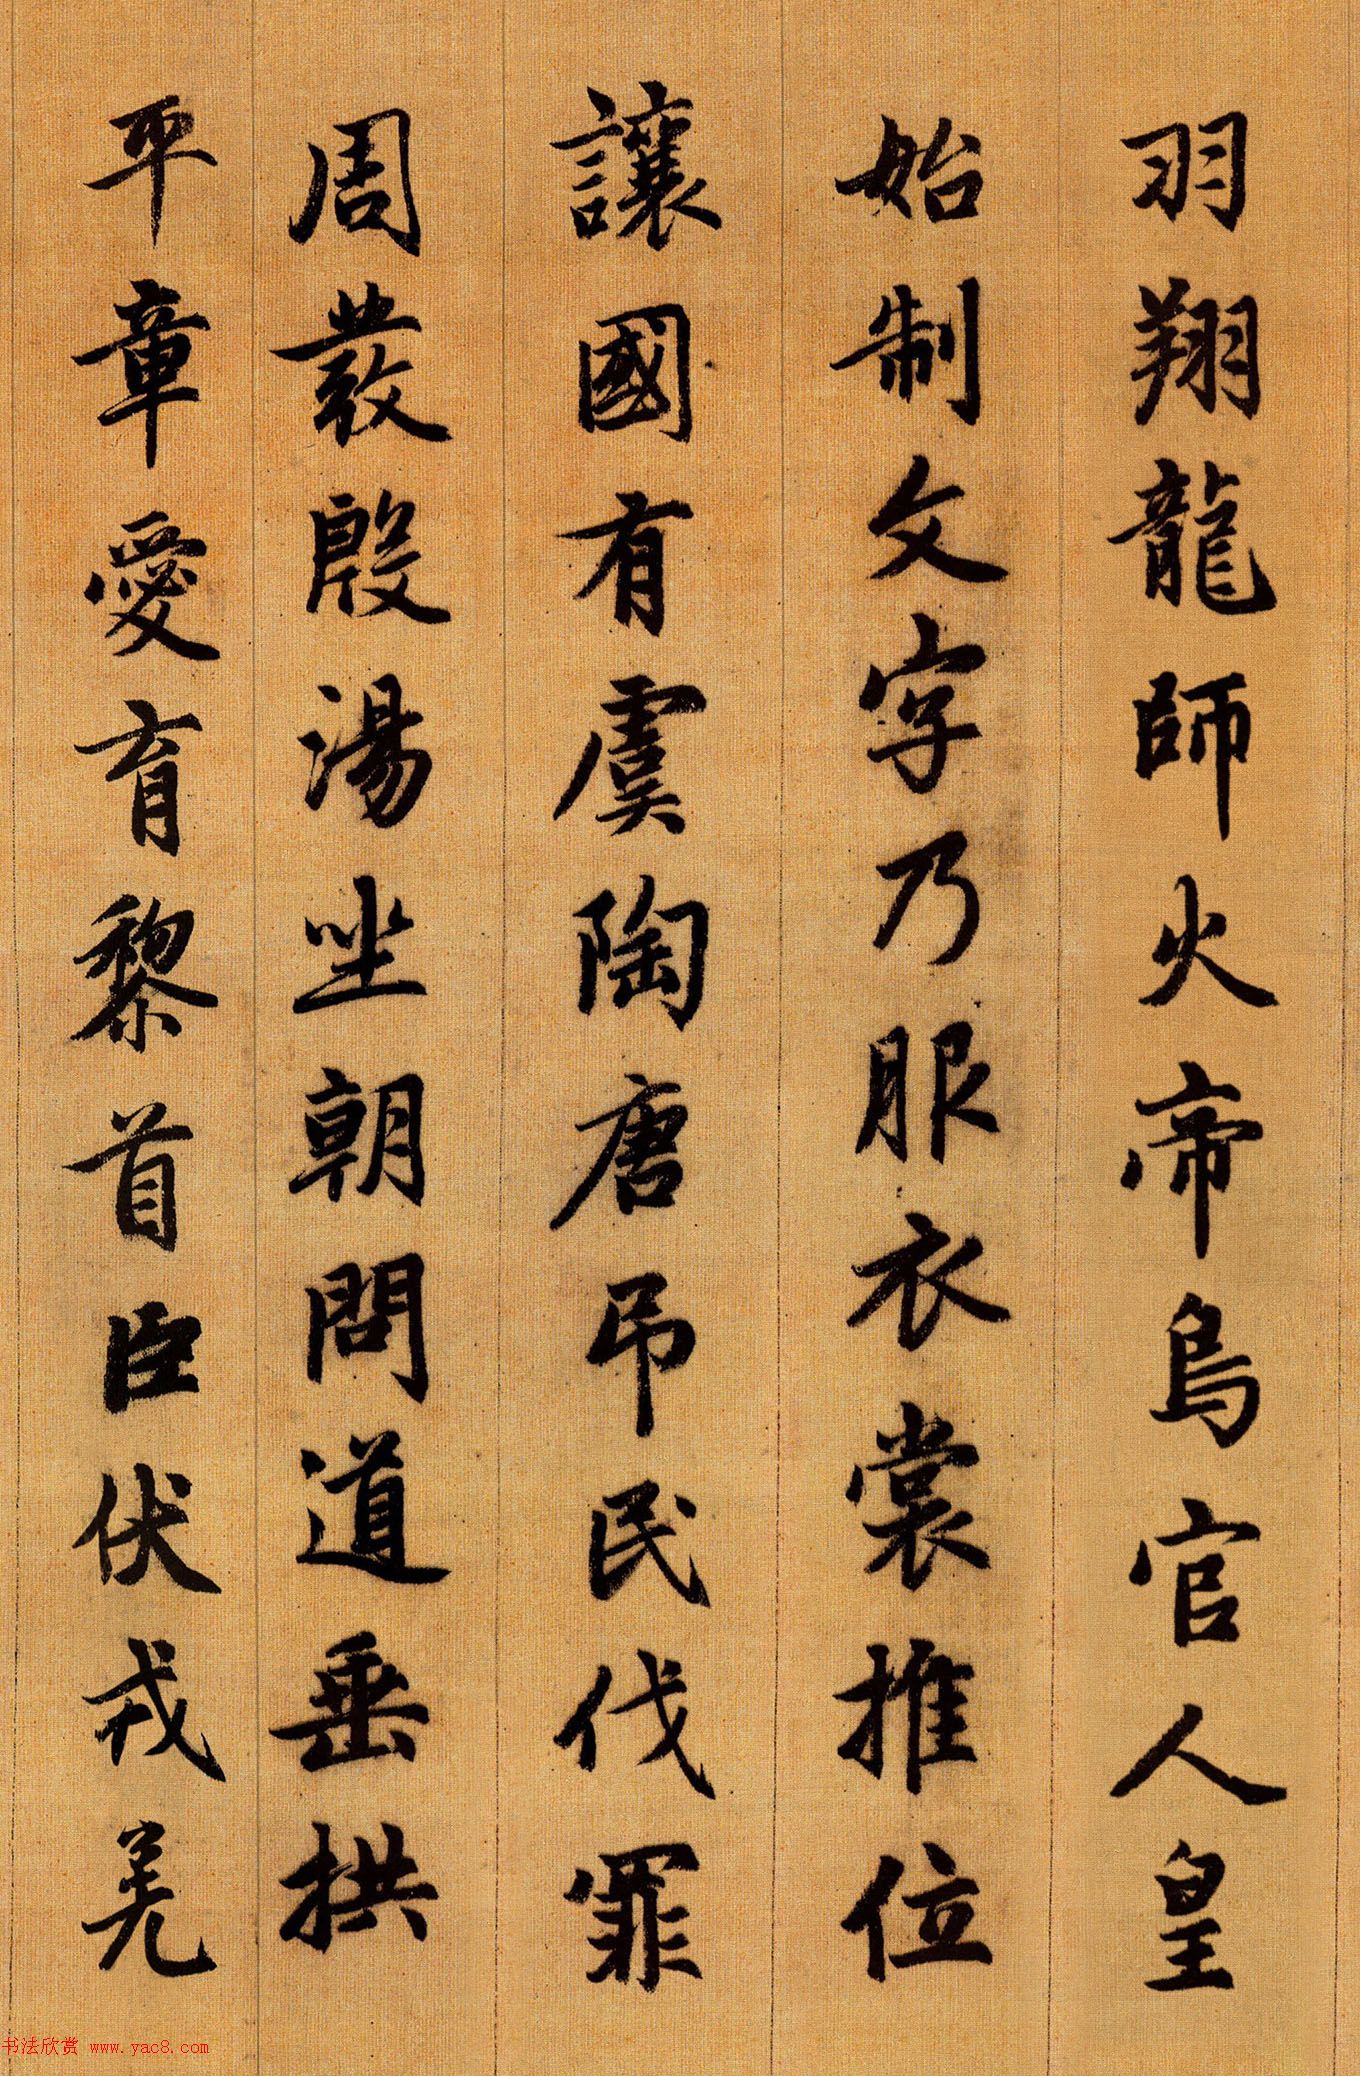 羽翔龍師火帝鳥官人皇
始制文字乃服衣裳推位
讓國有虞陶唐吊民伐罪
周發殷湯坐朝問道垂拱
平章愛育黎首臣伏戎羌
书法欣赏 www.yac8.com